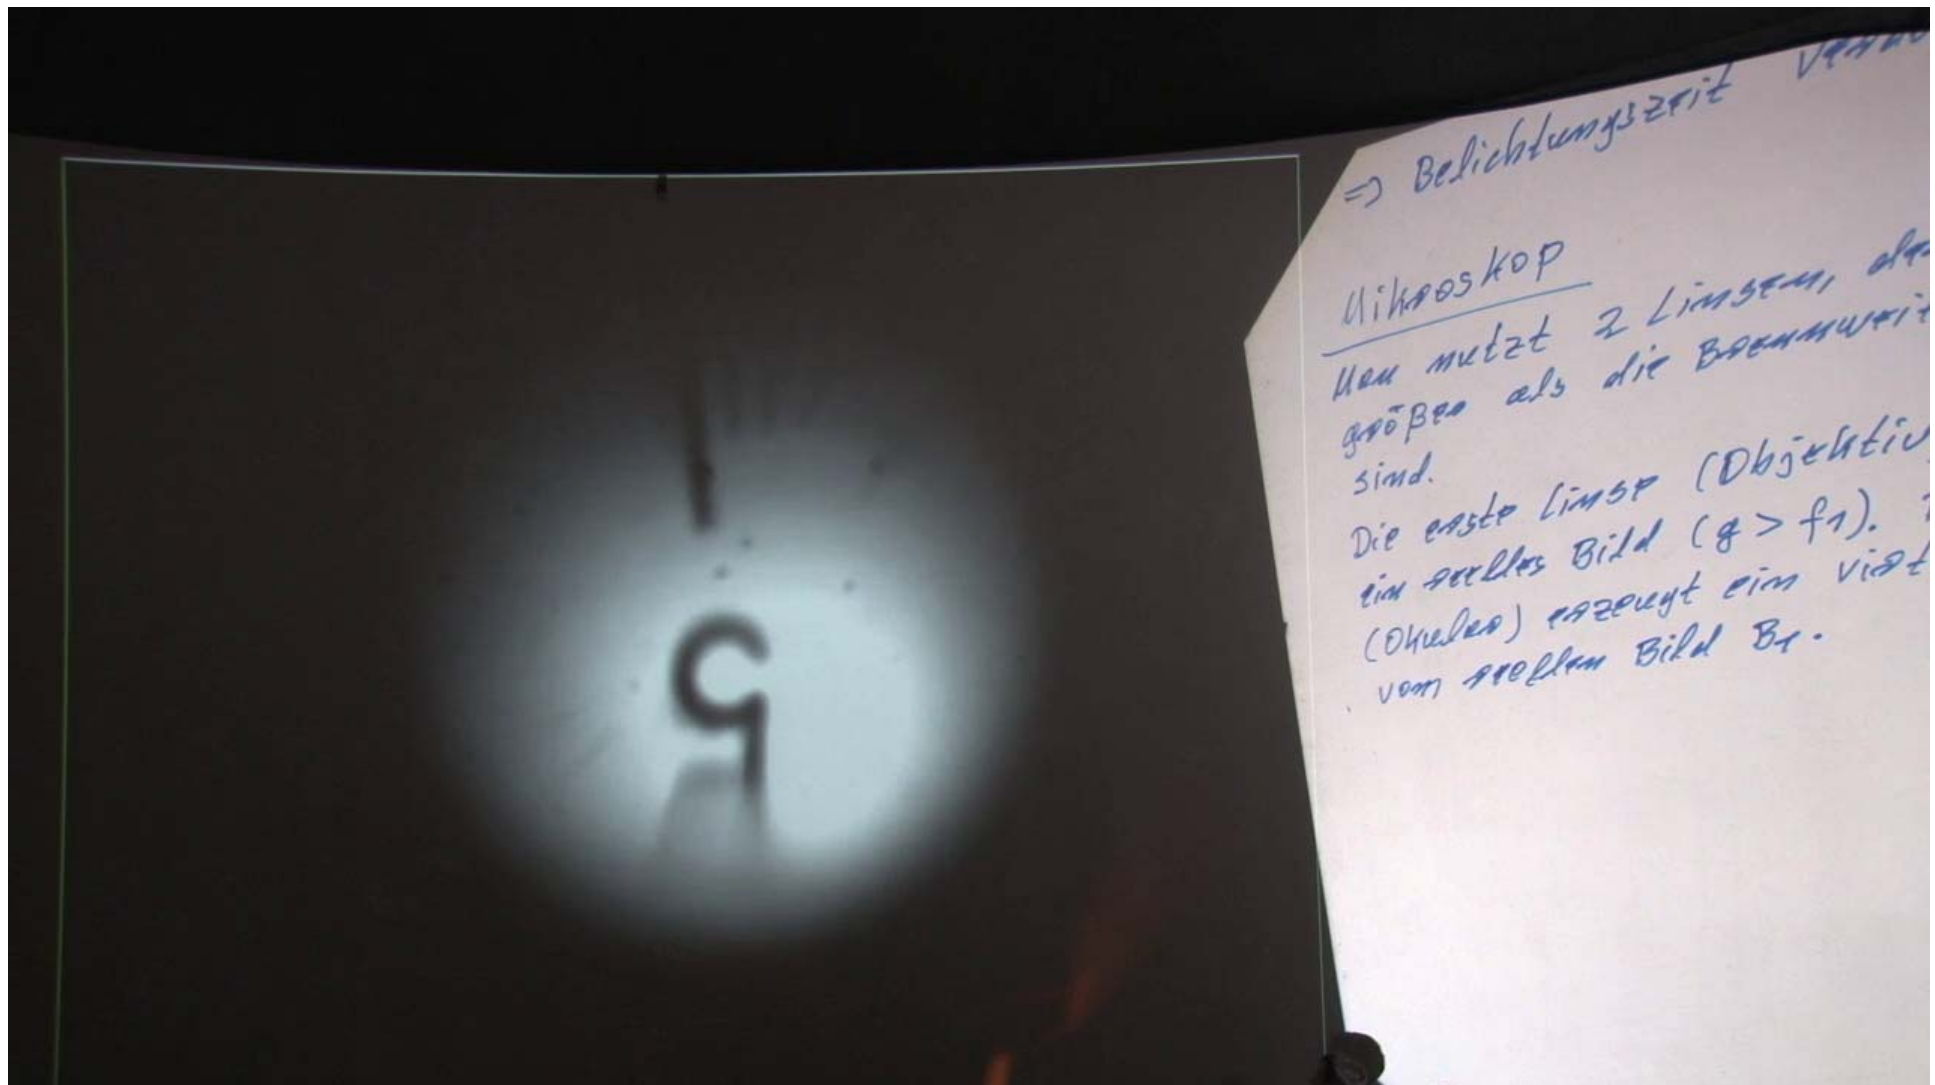 5
=> Belichtungszeit
Mikroskop
Man nutzt 2 Linsen,
größer als die Brennweit
sind.
Die erste Linse (Objektiv
ein reelles Bild (g > f1).
(Okular) erzeugt ein virt
vom reellen Bild B1.